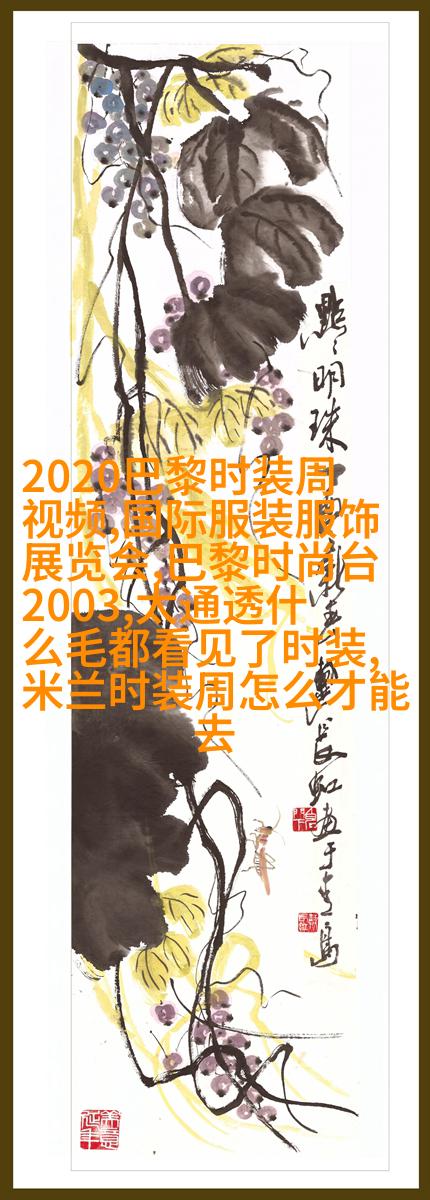 2020巴黎时装周
视频,国际服装服饰
展览会,巴黎时尚台
2003,大通透什
么毛都看见了时装,
米兰时装周怎么才能
去
點點明珠
長虹畫于青島